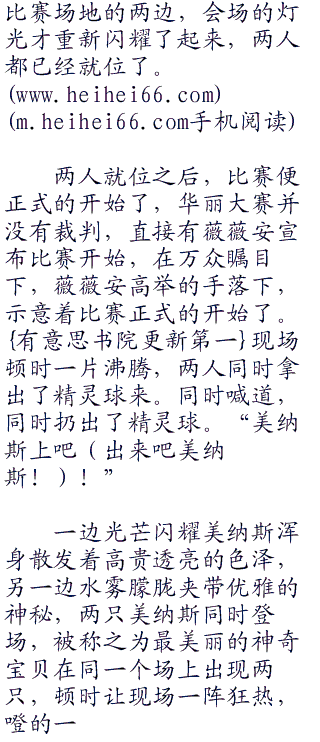 比赛场地的两边，会场的灯
光才重新闪耀了起来，两人
都已经就位了。
(www.heihei66.com)
(m.heihei66.com手机阅读)
两人就位之后，比赛便
正式的开始了，华丽大赛并
没有裁判，直接有薇薇安宣
布比赛开始，在万众瞩目
下，薇薇安高举的手落下，
示意着比赛正式的开始了。
{有意思书院更新第一}现场
顿时一片沸腾，两人同时拿
出了精灵球来。同时喊道，
同时扔出了精灵球。“美纳
斯上吧（出来吧美纳
斯！）！”
一边光芒闪耀美纳斯浑
身散发着高贵透亮的色泽，
另一边水雾朦胧夹带优雅的
神秘，两只美纳斯同时登
场，被称之为最美丽的神奇
宝贝在同一个场上出现两
只，顿时让现场一阵狂热，
噔的一